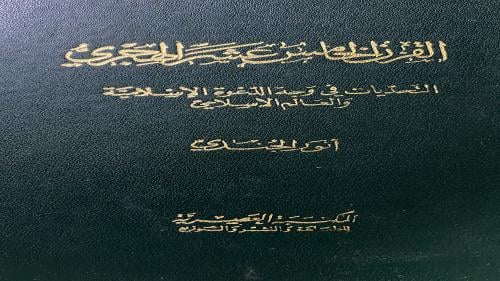 القرن الخامس عشر الهجري
التحديات في وجه الدعوة الإسلامية
والعالم الاسلامي
أنور الجندي
المكتبة العصرية
للطباعة والنشر والتوزيع